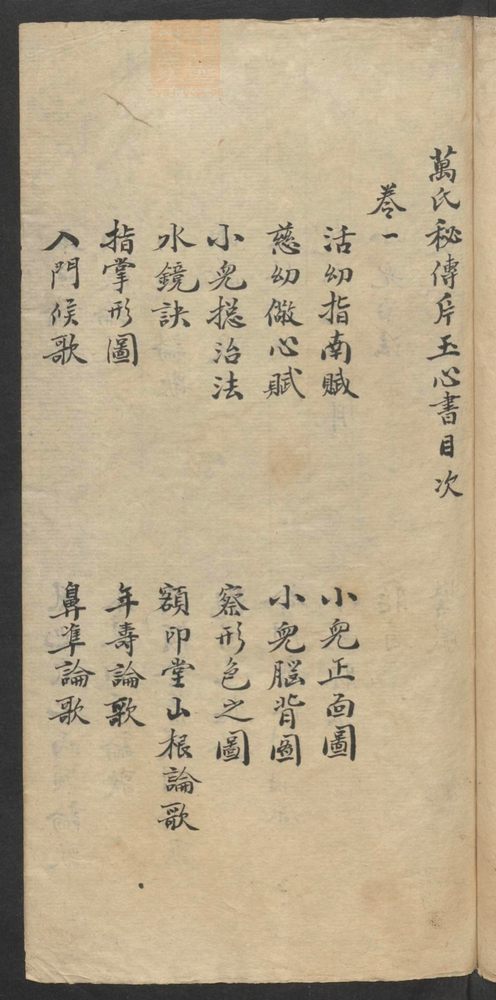 萬氏秘傳片玉心書目次
卷一
活幼指南賦 小兒正面圖
慈幼儆心賦 小兒腦背圖
小兒揔治法 察形色之圖
水鏡訣 額印堂山根論歌
指掌形圖 年壽論歌
入門候歌 鼻準論歌